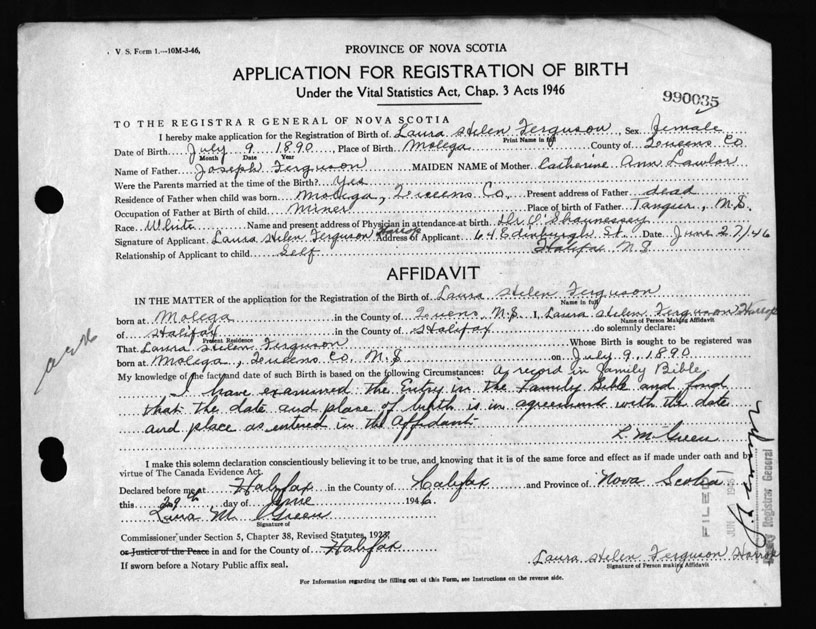 V. S. Form 1.--10M-3-46,
PROVINCE OF NOVA SCOTIA
APPLICATION FOR REGISTRATION OF BIRTH
Under the Vital Statistics Act, Chap. 3 Acts 1946
990035
TO THE REGISTRAR GENERAL OF NOVA SCOTIA
I hereby make application for the Registration of Birth of Laura Helen Ferguson, Sex Female
Print Name in full
Date of Birth July 9 1890, Place of Birth Molega County of Queens Co
Month Date Year
Name of Father Joseph Ferguson MAIDEN NAME of Mother Catherine Ann Lawlor
Were the Parents married at the time of the Birth? Yes
Residence of Father when child was born Molega, Queens Co, Present address of Father dead
Occupation of Father at Birth of child Miner Place of Birth of Father Tangier, N.S.
Race White Name and present address of Physician in attendance at birth Dr O'Shaunessay
Signature of Applicant Laura Helen Ferguson Harrop Address of Applicant 64 Edinburgh St. Date June 27/46
Relationship of Applicant to child Self Halifax N.S
AFFIDAVIT
IN THE MATTER of the application for the Registration of the Birth of Laura Helen Ferguson
Name in full
born at Molega in the County of Queens, N.S. I, Laura Helen Ferguson Harrop
Name of Person Making Affidavit
of Halifax in the County of Halifax do solemnly declare:
Present Residence
That Laura Helen Ferguson Whose Birth is sought to be registered was
born at Molega, Queens Co, N.S on July 9, 1890
My knowledge of the fact and date of such Birth is based on the following Circumstances: As record in Family Bible
I have examined the Entry in the Family Bible and find
that the date and place of birth is in agreement with the date
and place as entered in the affidavit
L. M Green
I make this solemn declaration conscientiously believing it to be true, and knowing that it is of the same force and effect as if made under oath and by
virtue of The Canada Evidence Act.
Declared before me at Halifax in the County of Halifax and Province of Nova Scotia
this 29th day of June 1946
Luna M Green
Signature of
Commissioner under Section 5, Chapter 38, Revised Statutes, 1923,
or Justice of the Peace in and for the County of Halifax
If sworn before a Notary Public affix seal.
Laura Helen Ferguson Harrop
Signature of Person making Affidavit
For Information regarding the filling out of this Form, see Instructions on the reverse side.
FILED
Registrar General